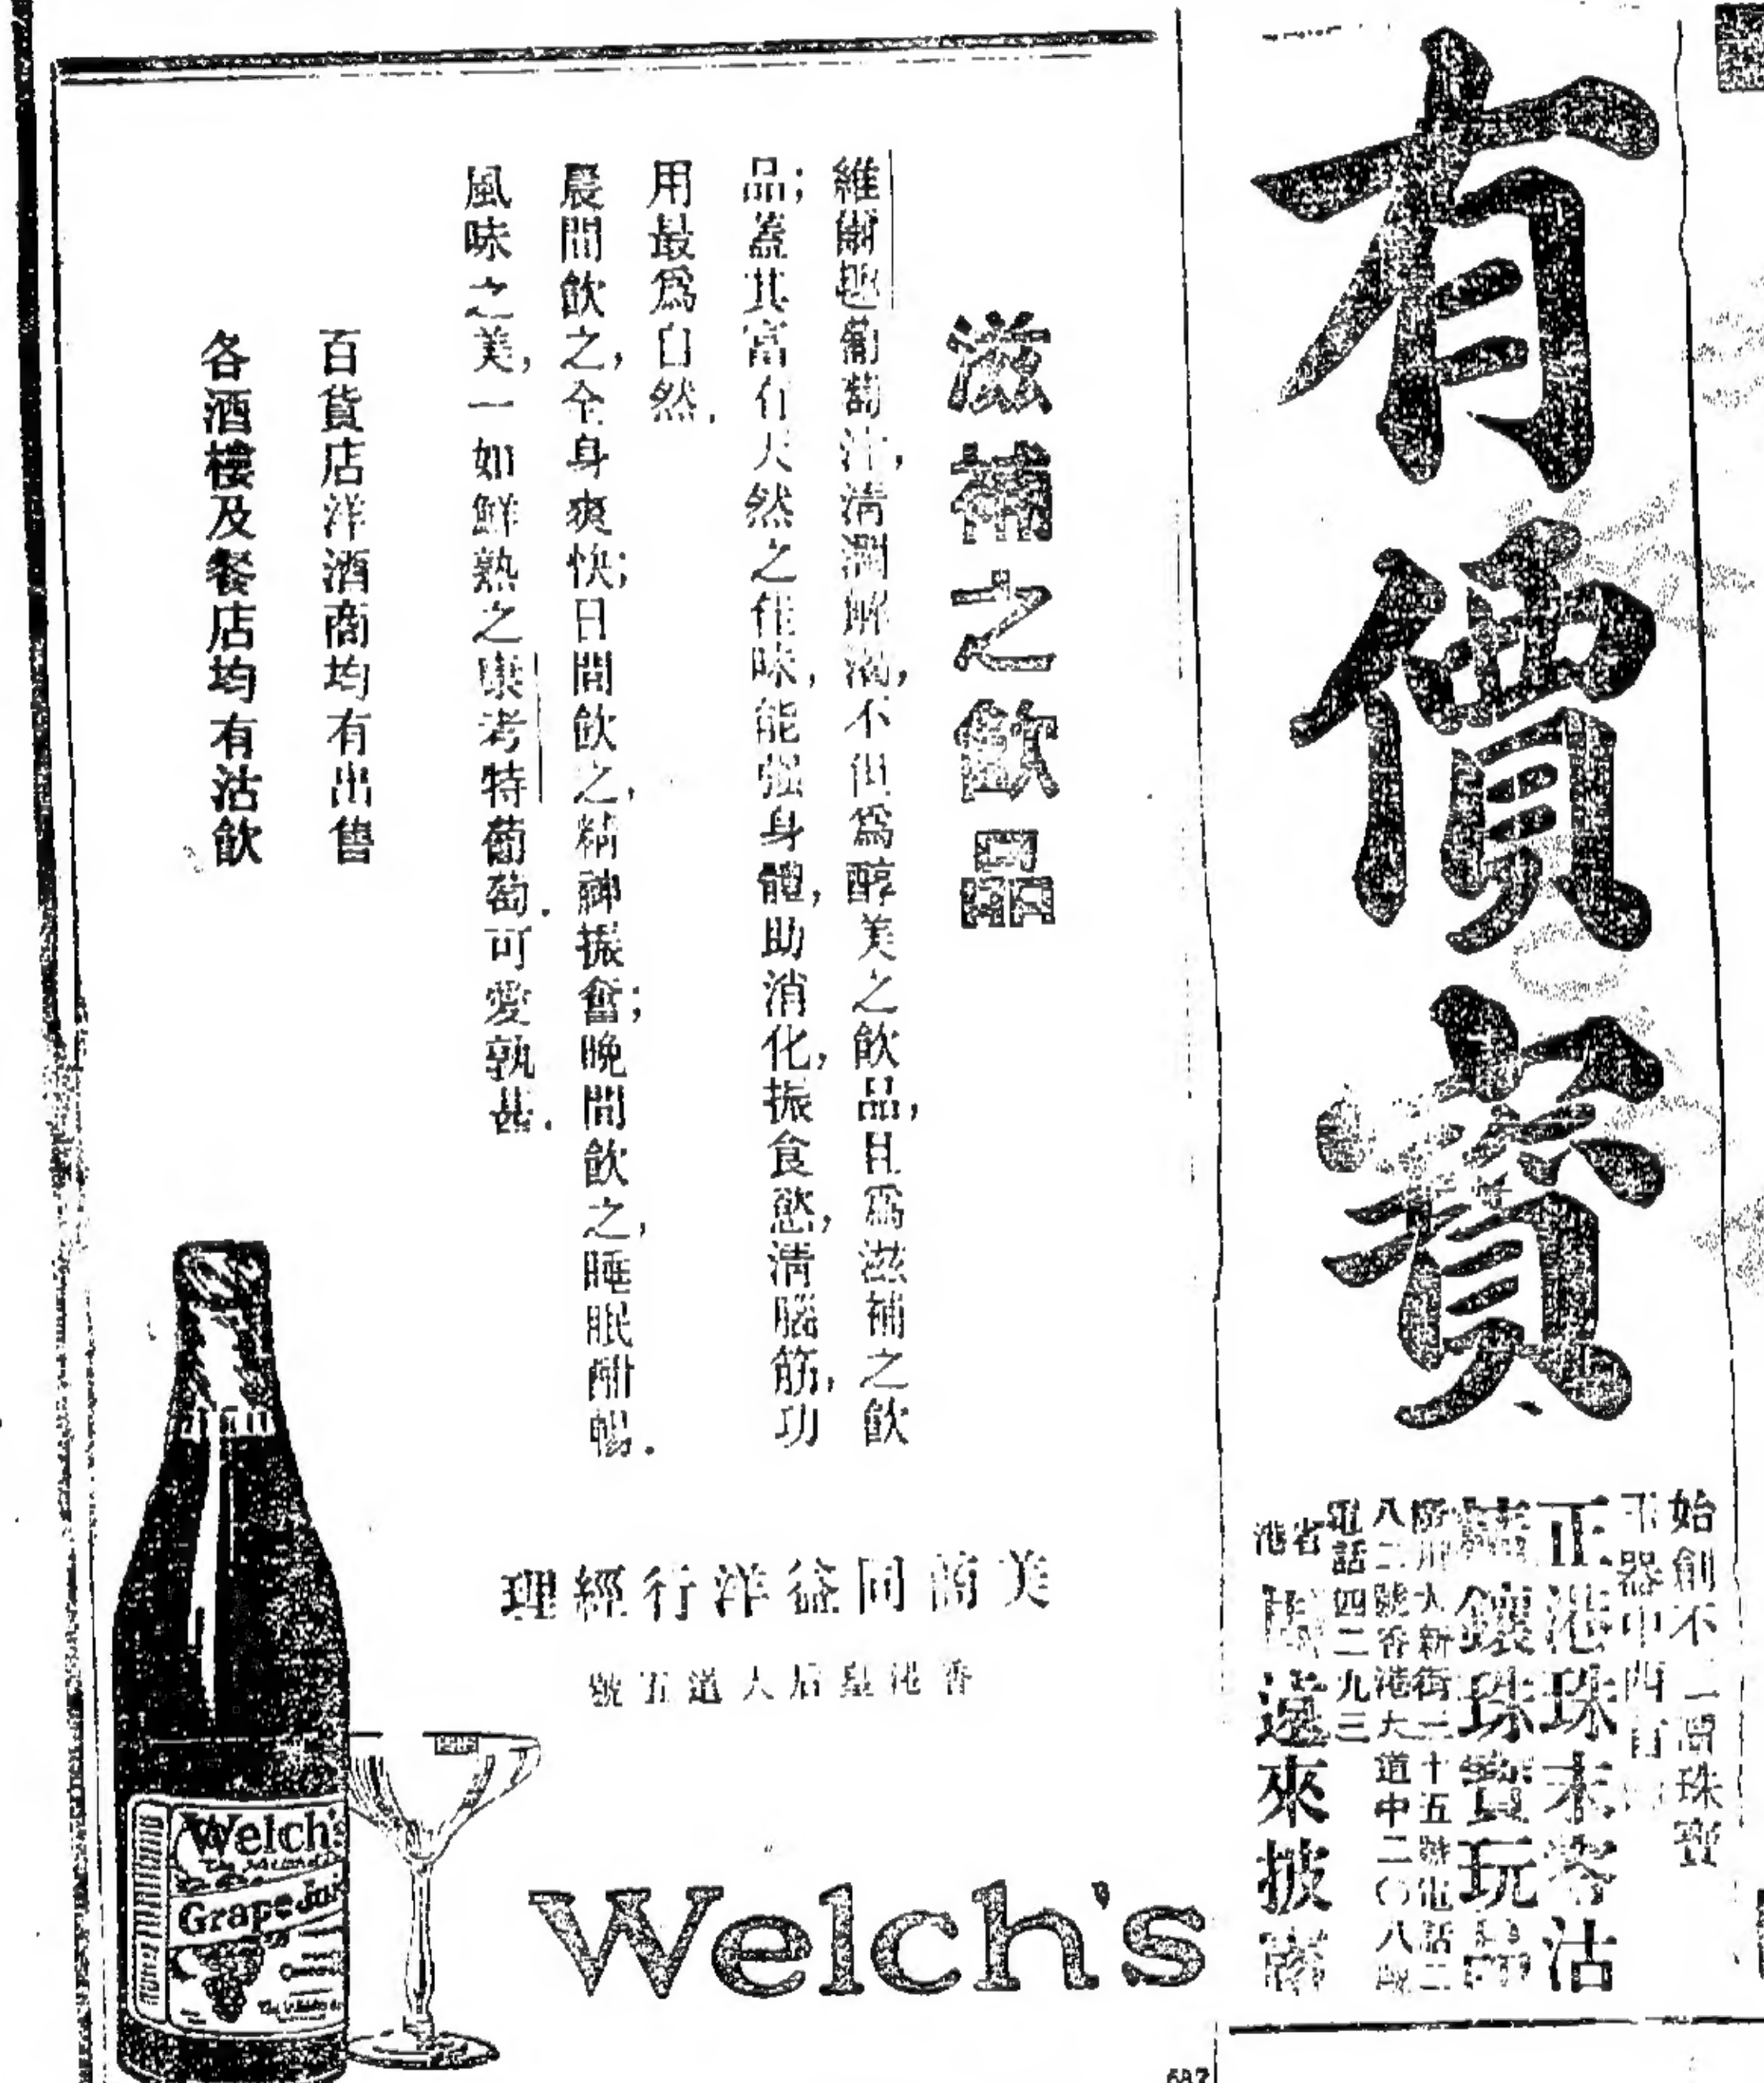 有價寶
始創不二價珠寶
玉器中西首
正港珠末零沽
鑲珠寶玩品
廣州大新街二十五號電話二
八二號香港大道中二〇八號
電話四二九三
省港
遠來披
滋補之飲品
維爾趣葡萄汁,清潤解渴,不但爲醇美之飲品,且爲滋補之飲
品;蓋其富有天然之佳味,能强身體,助消化,振食慾,清腦筋,功
用最爲自然.
晨間飲之,全身爽快;日間飲之,精神振奮;晚間飲之,睡眠酣暢.
風味之美,一如鮮熟之康考特葡萄.可愛孰甚.
百貨店洋酒商均有出售
各酒樓及餐店均有沽飲
美商同益洋行經理
香港皇后大道五號
Welch's
Grape Jui
Welch's
687